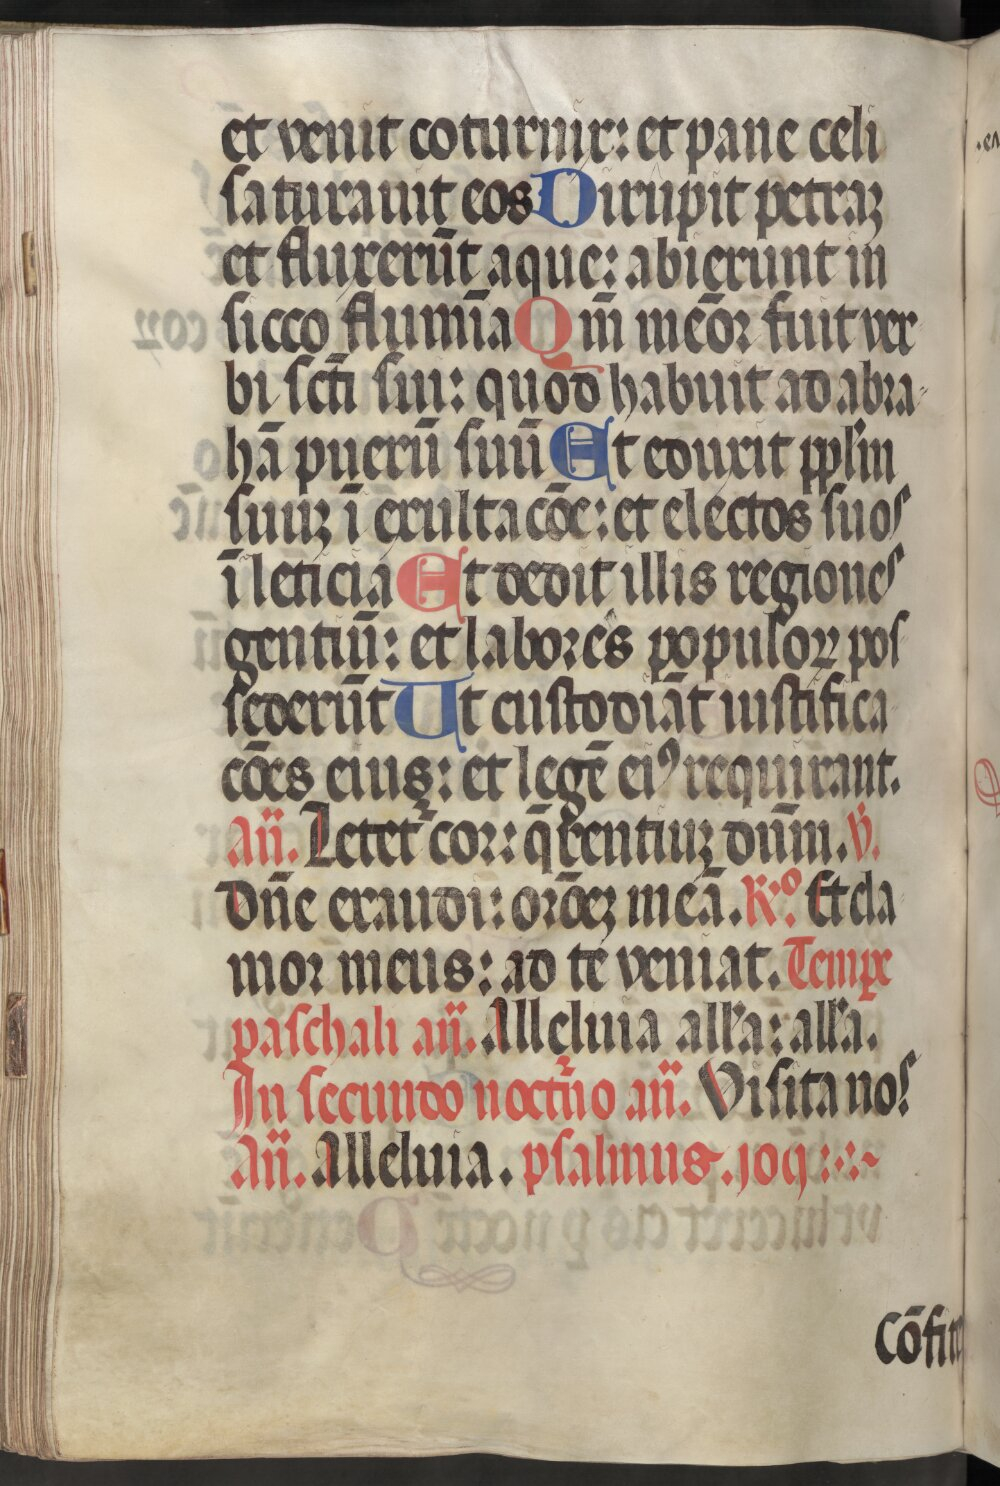 et venit coturnix: et pane celi
saturauit eos Dirupit petraꝫ
et fluxerūt aque: abierunt in
sicco flumīa Qm̄ mēor fuit ver
bi sct̄i sui: quod habuit ad abra-
hā puerū suū Et eduxit ppl̄m
suuꝫ ī exultacōe: et electos suos
ī leticia Et dedit illis regiones
gentiū: et labores populoꝝ pos
sederūt Ut custodiāt iustifica
cōes eius: et legē eiꝰ requirant.
An̄. Letet᷑ cor: q̄rentiuꝫ dūm. V̄.
Dn̄e exaudi: orōeꝫ meā. R̄o. Et cla
mor meus: ad te veniat. Tempe
paschali an̄. Alleluia all'a: all'a.
In secundo noct̄no an̄. Visita nos
An̄. Alleluia. psalmus. joq
Cōfite